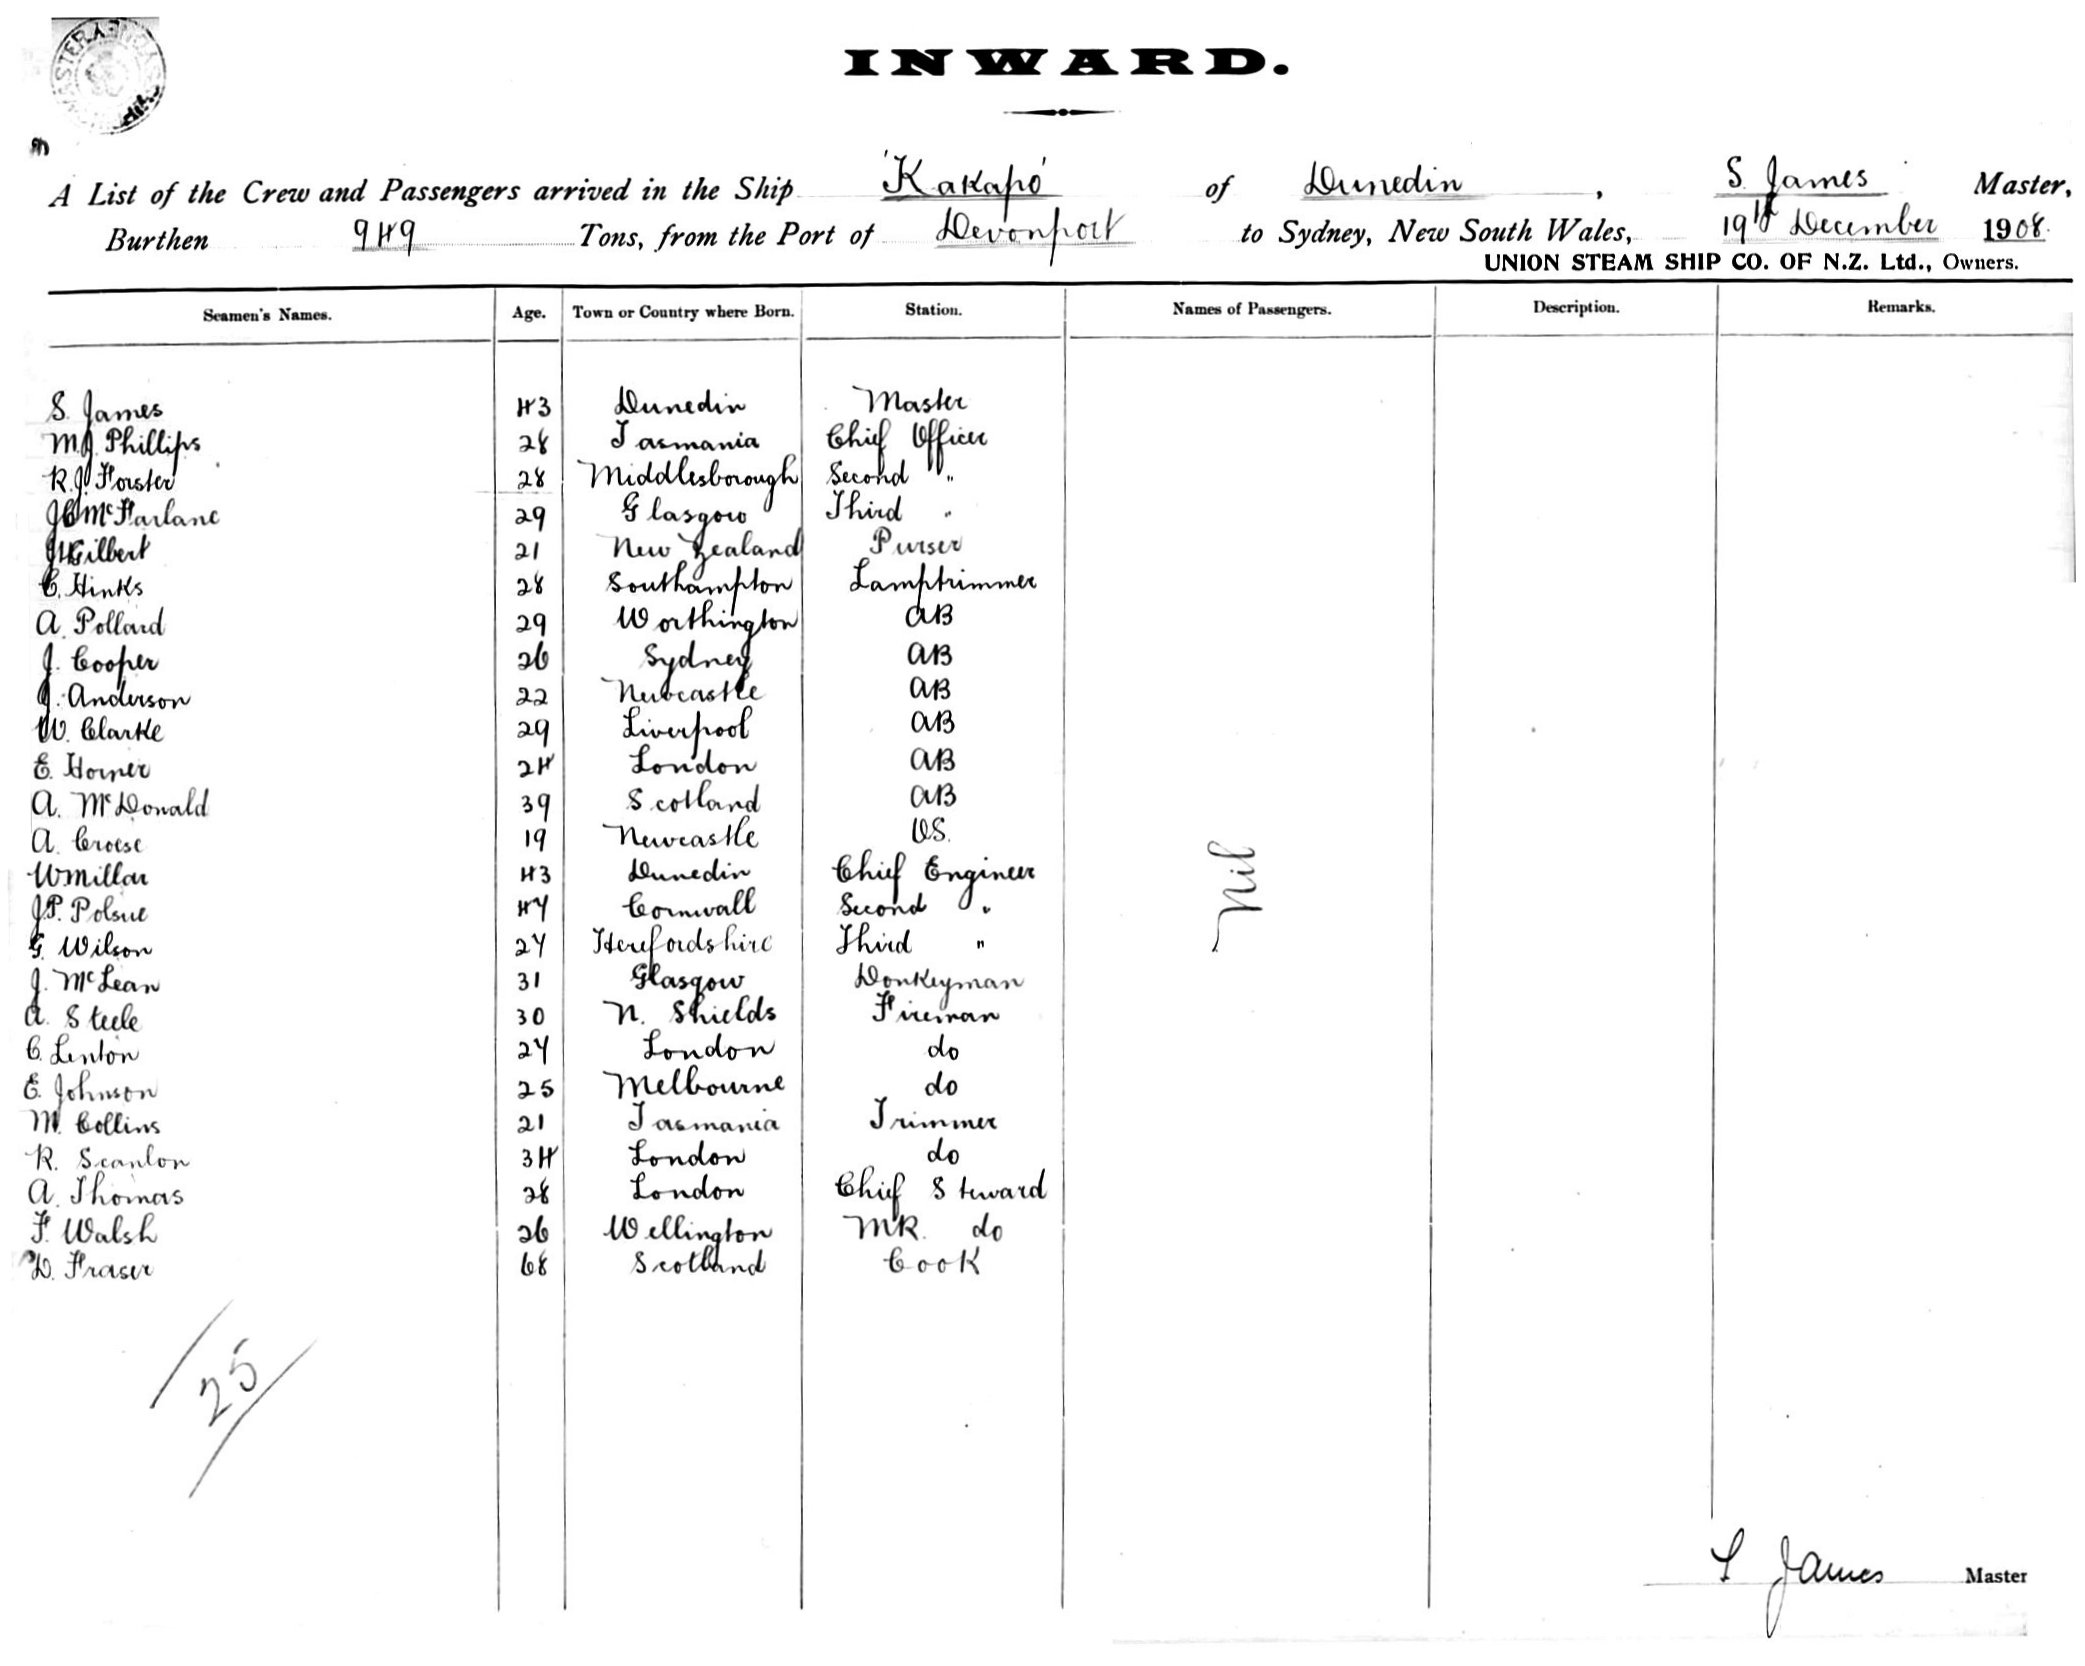 INWARD.
A List of the Crew and Passengers arrived in the Ship 'Kakapo' of Dunedin, S. James Master,
Burthen 949 Tons, from the Port of Devonport to Sydney, New South Wales, 19th December 1908.
UNION STEAM SHIP CO. OF N.Z. Ltd., Owners.
Seamen's Names. Age. Town or Country where Born. Station. Names of Passengers. Description. Remarks.
S. James 43 Dunedin Master
M.J. Phillips 28 Tasmania Chief Officer
R.J. Forster 28 Middlesborough Second "
J C McFarlane 29 Glasgow Third "
J H Gilbert 21 New Zealand Purser
C. Hinks 28 Southampton Lamptrimmer
A. Pollard 29 Worthington AB
J. Cooper 26 Sydney AB
J. Anderson 22 Newcastle AB
W. Clarke 29 Liverpool AB
E. Horner 24 London AB
A. McDonald 39 Scotland AB
A. Croese 19 Newcastle OS.
W Millar 43 Dunedin Chief Engineer
J.P. Polsue 47 Cornwall Second "
G. Wilson 27 Herefordshire Third "
J. McLean 31 Glasgow Donkeyman
A. Steele 30 N. Shields Fireman
C. Lenton 27 London do
E. Johnson 25 Melbourne do
M. Collins 21 Tasmania Trimmer
R. Scanlon 34 London do
A. Thomas 28 London Chief Steward
F. Walsh 26 Wellington MR. do
D. Fraser 68 Scotland Cook
Nil
25
S James Master